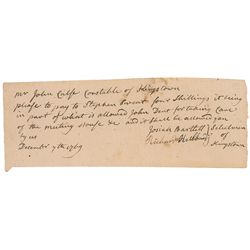 Mr John Calfe Constable of Kingstown
please to pay to Stephen Sweat four Shillings it being
in part of what is allowed John Dent for taking Care
of the meeting House &c and it shall be allowed you
by us
Josiah Bartlett Selectmen
December 7th 1769
Hubbard of
Kingstown